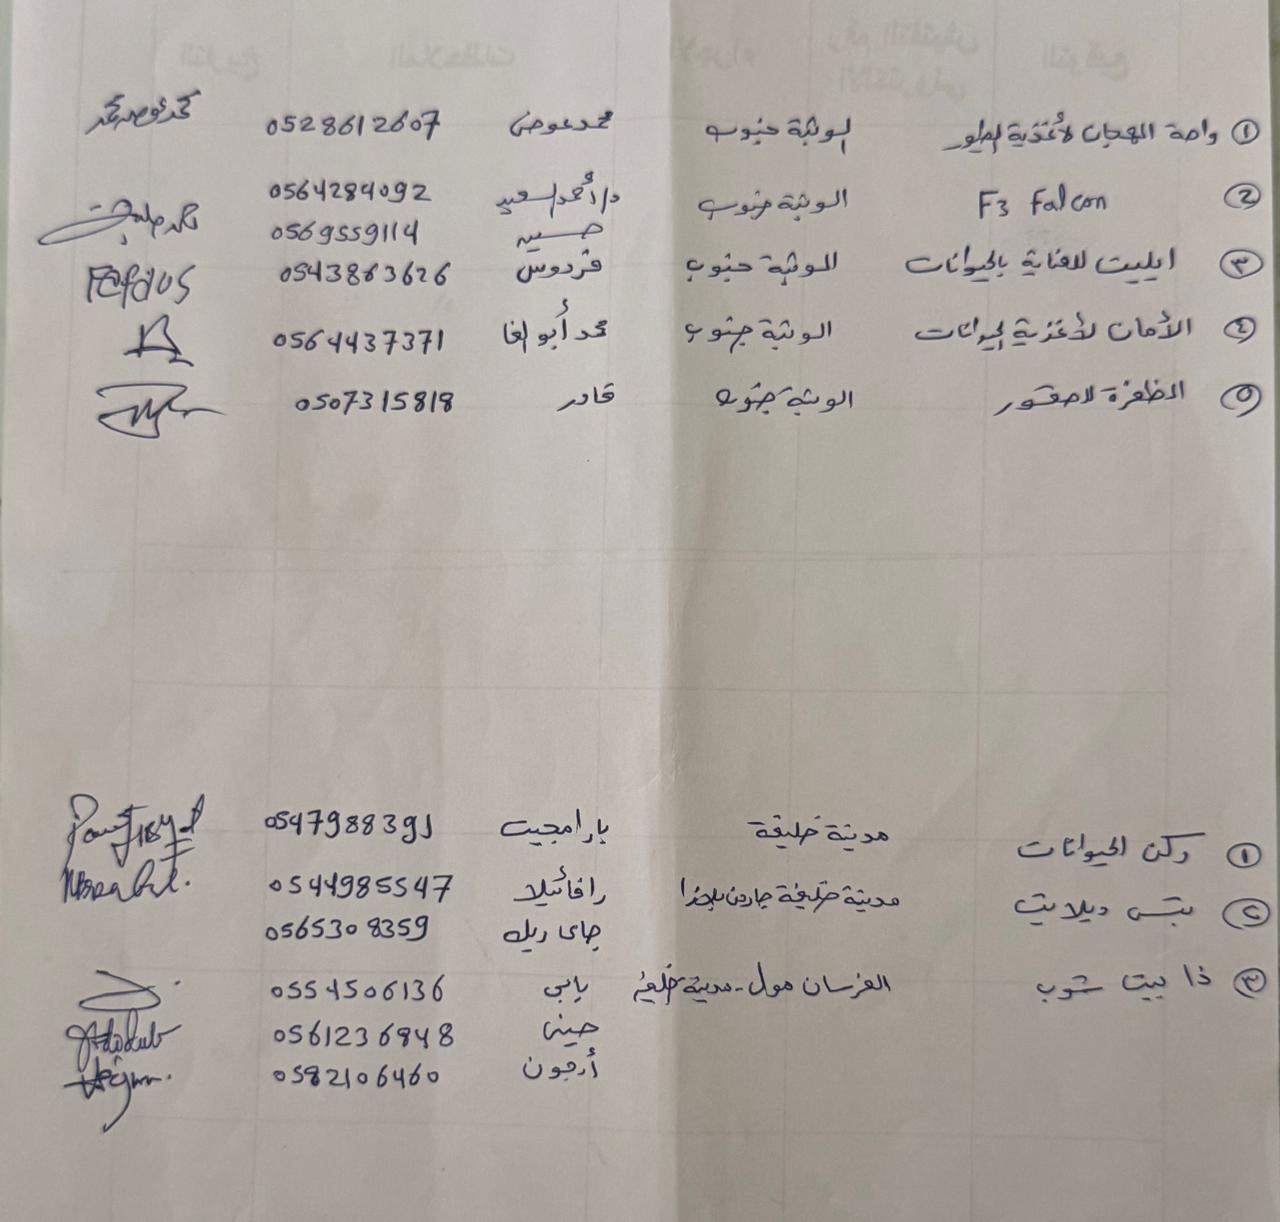 ① واحة الهجان لأغذية الطيور الوثبة جنوب محمد عوض 0528612607
② F3 Falcon الوثبة جنوب د/أحمد السعيد 0564284092
حسين 0569559114
③ ايليت للعناية بالحيوانات الوثبة جنوب فردوس 0543863626 Ferdous
④ الأمان لأغذية الحيوانات الوثبة جنوب محمد أبو الفا 0564437371
⑤ الظفرة للصقور الوثبة جنوب قادر 0507315818
① ركن الحيوانات مدينة خليفة بارامجيت 0547988391
② بتس ديلايت مدينة خليفة جاردن بلازا رافائيلا 0544985547
جاى ريك 0565308359
③ ذا بيت شوب الفرسان مول - مدينة خليفة يابي 0554506136
جيني 0561236948
أرجون 0582106460